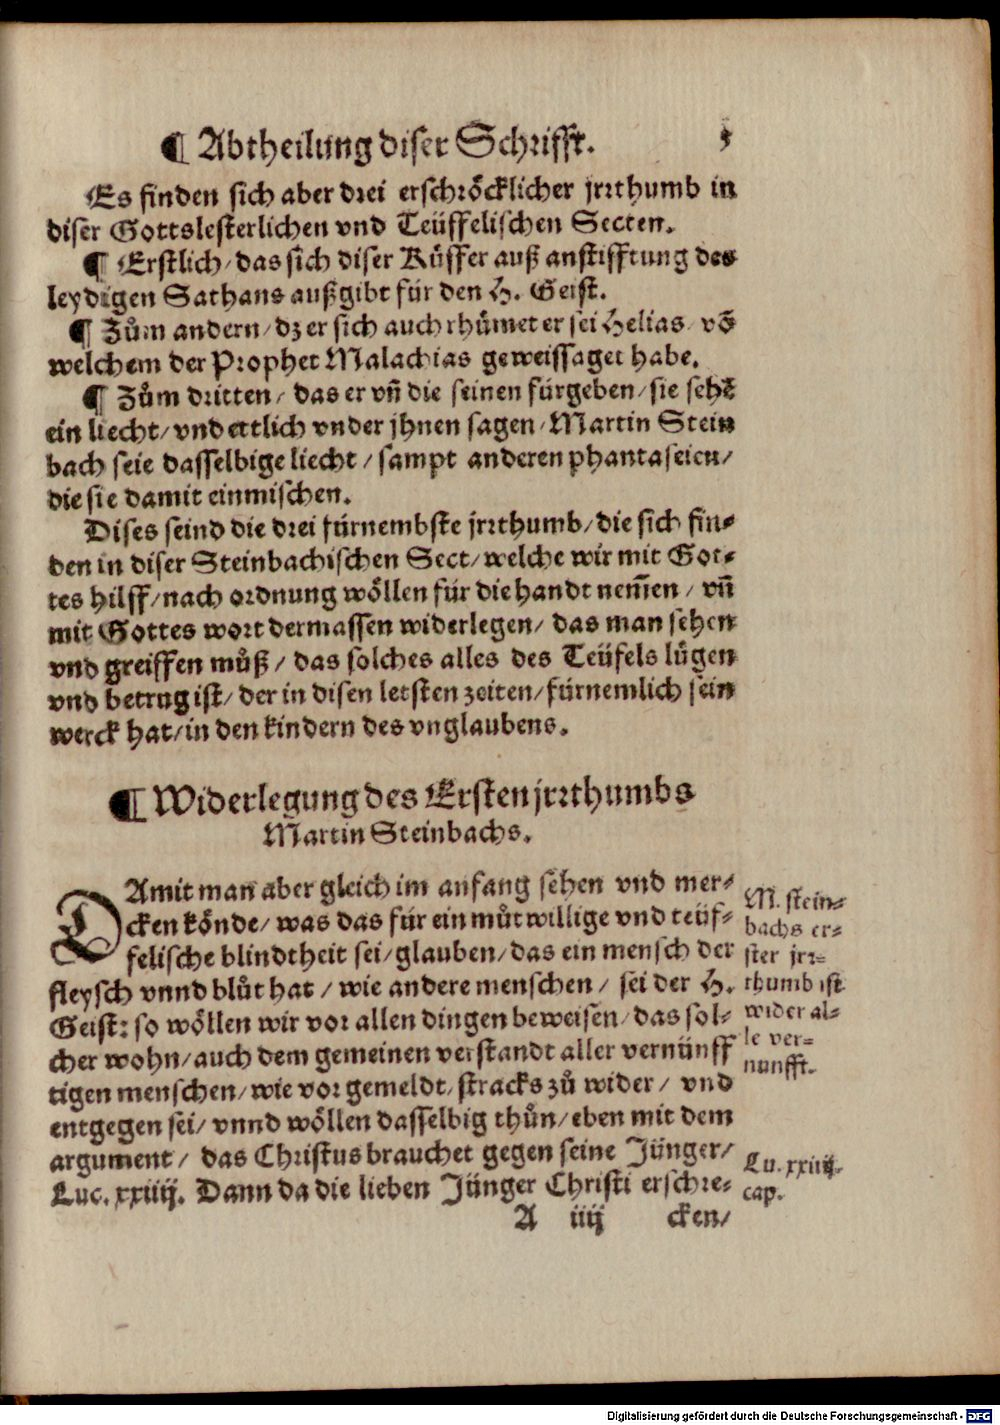 ¶ Abtheilung diser Schrifft. 5
Es finden sich aber drei erschröcklicher jrrthumb in
diser Gottslesterlichen vnd Teüffelischen Secten.
¶ Erstlich/ das sich diser Küffer auß anstifftung des
leydigen Sathans außgibt für den H. Geist.
¶ Zům andern/ dz er sich auch rhůmet er sei Helias/ võ
welchem der Prophet Malachias geweissaget habe.
¶ Zům dritten/ das er vñ die seinen fürgeben/ sie sehẽ
ein liecht/ vnd ettlich vnder jhnen sagen/ Martin Stein
bach seie dasselbige liecht/ sampt anderen phantaseien/
die sie damit einmischen.
Dises seind die drei fürnembste jrrthumb/ die sich fin⸗
den in diser Steinbachischen Sect/ welche wir mit Got⸗
tes hilff/ nach ordnung wöllen für die handt nem̃en/ vñ
mit Gottes wort dermassen widerlegen/ das man sehen
vnd greiffen můß/ das solches alles des Teüfels lügen
vnd betrug ist/ der in disen letsten zeiten/ fürnemlich sein
werck hat/ in den kindern des vnglaubens.
¶ Widerlegung des Ersten jrrthumbs
Martin Steinbachs.
DAmit man aber gleich im anfang sehen vnd mer⸗
cken könde/ was das für ein můtwillige vnd teüf⸗
felische blindtheit sei/ glauben/ das ein mensch der
fleysch vnnd blůt hat/ wie andere menschen/ sei der H.
Geist: so wöllen wir vor allen dingen beweisen/ das sol⸗
cher wohn/ auch dem gemeinen verstandt aller vernünff
tigen menschen/ wie vor gemeldt/ stracks zů wider/ vnd
entgegen sei/ vnnd wöllen dasselbig thůn/ eben mit dem
argument/ das Christus brauchet gegen seine Jünger/
Luc. xxiiij. Dann da die lieben Jünger Christi erschre⸗
A iiij cken/
M. stein⸗
bachs er⸗
ster jrr⸗
thumb ist
wider al⸗
le ver⸗
nunfft.
Lu. xxiiij.
cap.
Digitalisierung gefördert durch die Deutsche Forschungsgemeinschaft - DFG